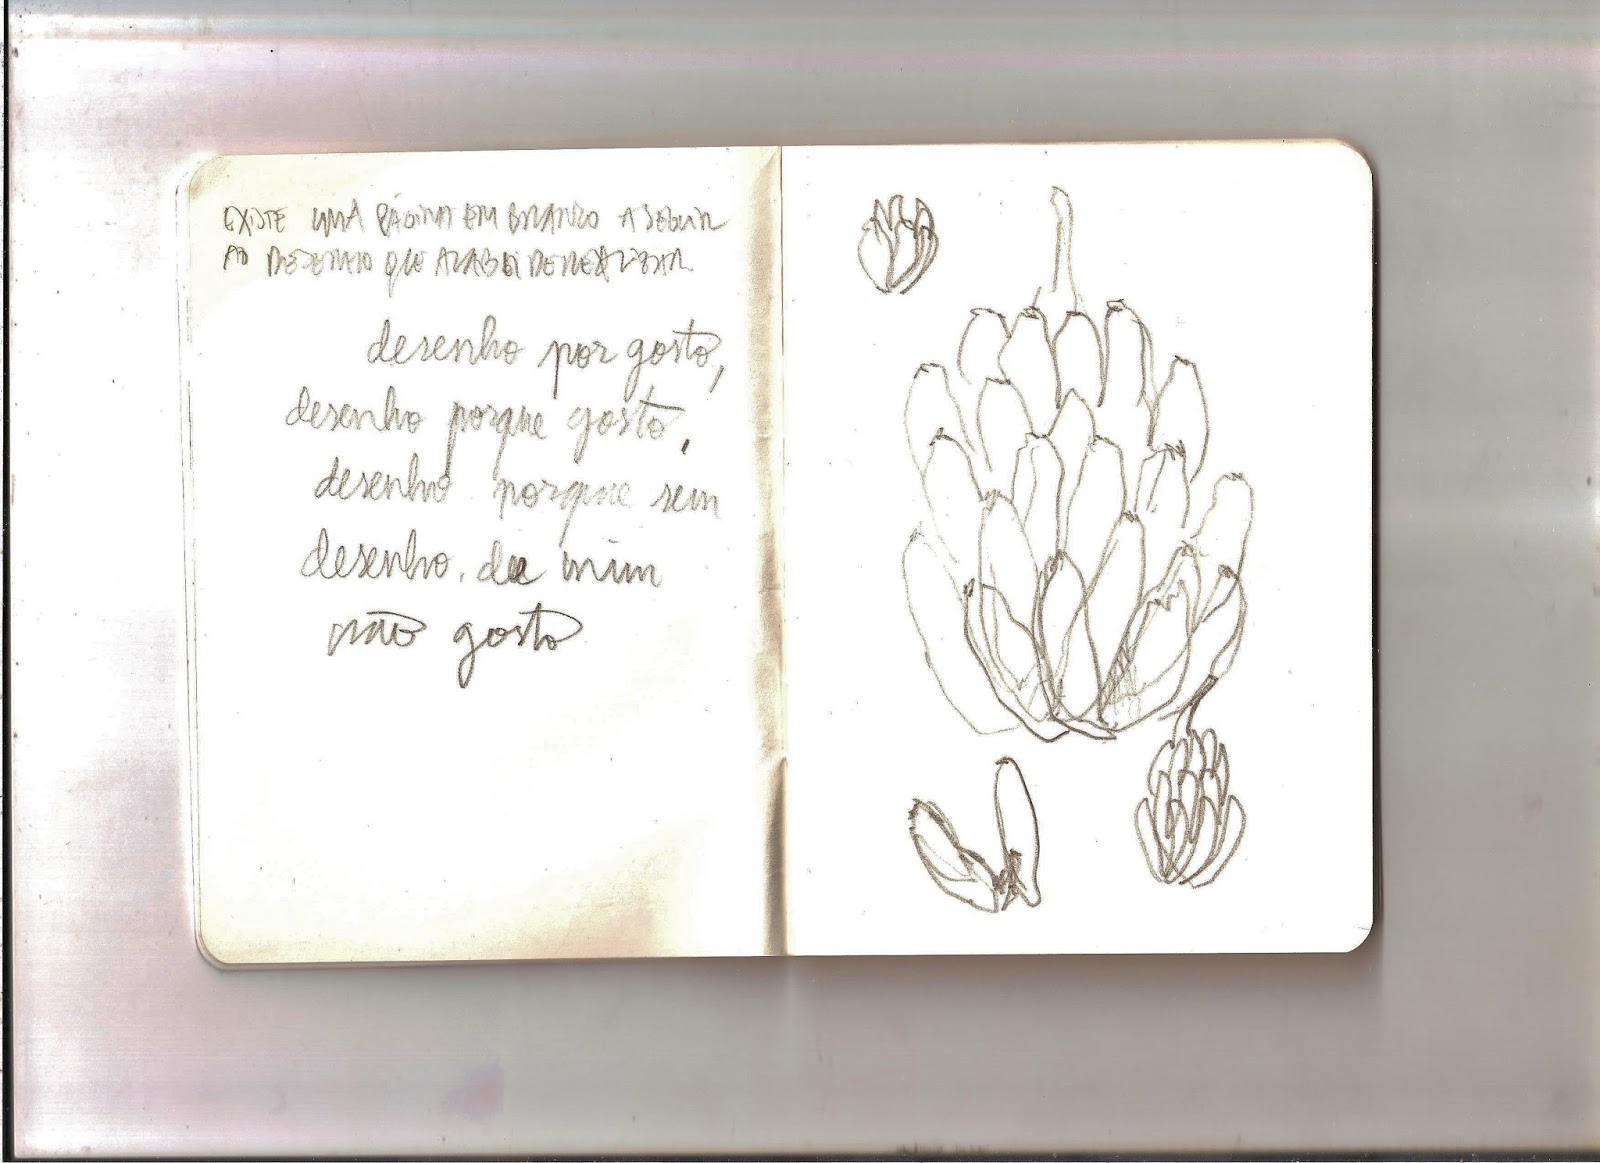 EXISTE UMA PÁGINA EM BRANCO A SEGUIR
AO DESENHO QUE ACABEI DE REALIZAR
desenho por gosto,
desenho porque gosto,
desenho porque sem
desenho. de mim
não gosto